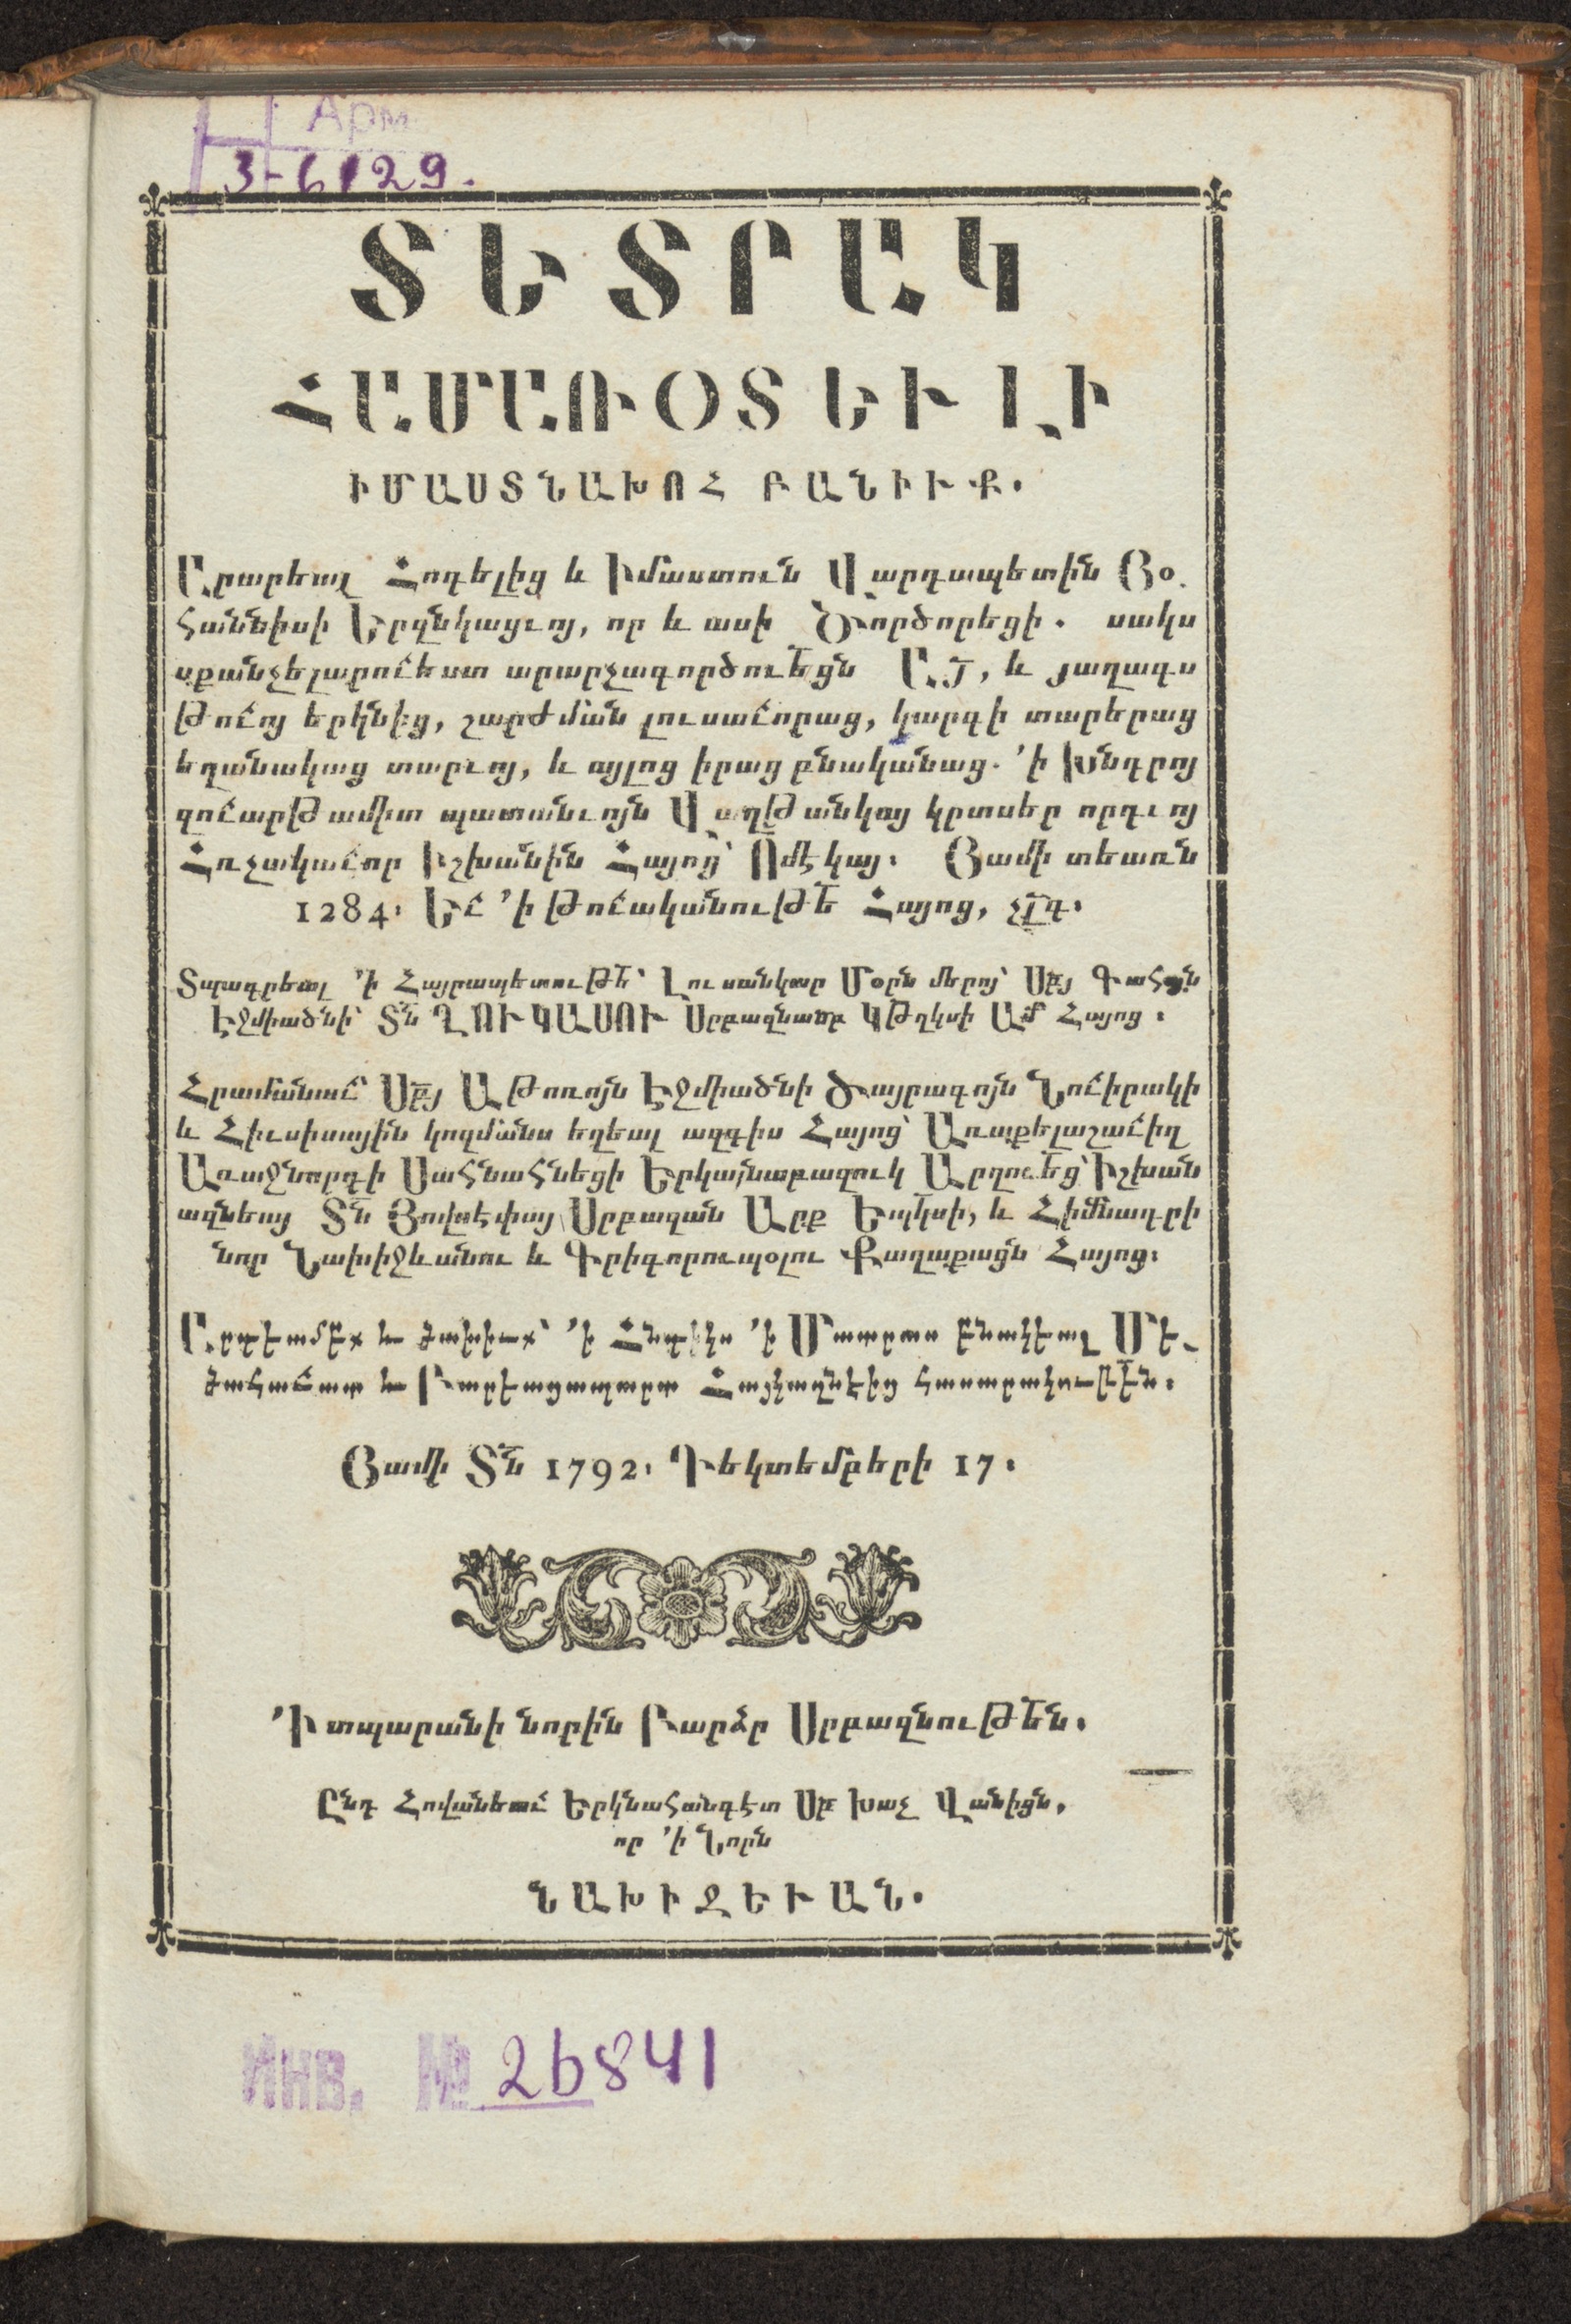 Арм
3-6129.
ՏԵՏՐԱԿ
ՀԱՄԱՌՕՏ ԵՒ ԼԻ
ԻՄԱՍՏՆԱԽՈՀ ԲԱՆԻՒՔ.
Արարեալ Հոգելից և Իմաստուն Վարդապետին Յօ֊
հաննիսի Երզնկացւոյ, որ և ասի Ծործորեցի. սակս
սքանչելարուեստ արարչագործուե̅ցն Ա̅յ, և յաղագս
Թուոյ երկնից, շարժման լուսաւորաց, կարգի տարերաց
եղանակաց տարւոյ, և այլոց իրաց բնականաց. ՚ի Խնդրոյ
զուարթամիտ պատանւոյն Վախթանկայ կրտսեր որդւոյ
Հռչակաւոր Իշխանին Հայոց՝ Ումէկայ։ Յամի տեառն
1284. Եւ ՚ի Թուականութե̅ Հայոց, ՉԼԳ.
Տպագրեալ ՚ի Հայրապետութե̅՝ Լուսանկար Մօրն մերոյ՝ Ս̅բյ Գահոյն
Էջմիածնի՝ Տ̅ն ՂՈՒԿԱՍՈՒ Սրբազնասբ ԿԹղկսի Ա̅մ Հայոց։
Հրամանաւ՝ Ս̅բյ Աթոռոյն Էջմիածնի Ծայրագոյն Նուիրակի
և Հիւսիսային կողմանս եղեալ ազգիս Հայոց՝ Առաքելաշաւիղ
Առաջնորդի Սահնահնեցի Երկայնաբազուկ Արղուե̅ց՝ Իշխան
ազնեայ Տ̅ն Յովսէփայ Սրբազան Արք Եպկսի, և Հիմնադրի
նոր Նախիջևանու և Գրիգորուպօլու Քաղաքացն Հայոց։
Արդեամբք և ծախիւք՝ ՚ի Հնդիկս ՚ի Մատրաս բնակեալ Մե֊
ծահաւատ և Բարեացապարտ Հայկազնեից հասարակութե̅ն։
Յամի Տ̅ն 1792. Դեկտեմբերի 17.
՚Ի տպարանի նորին Բարձր Սրբազնութե̅ն.
Ընդ Հովանեաւ Երկնահանգէտ Ս̅բ Խաչ Վանիցն.
որ ՚ի Նորն
ՆԱԽԻՋԵՒԱՆ.
Инв. № 26841